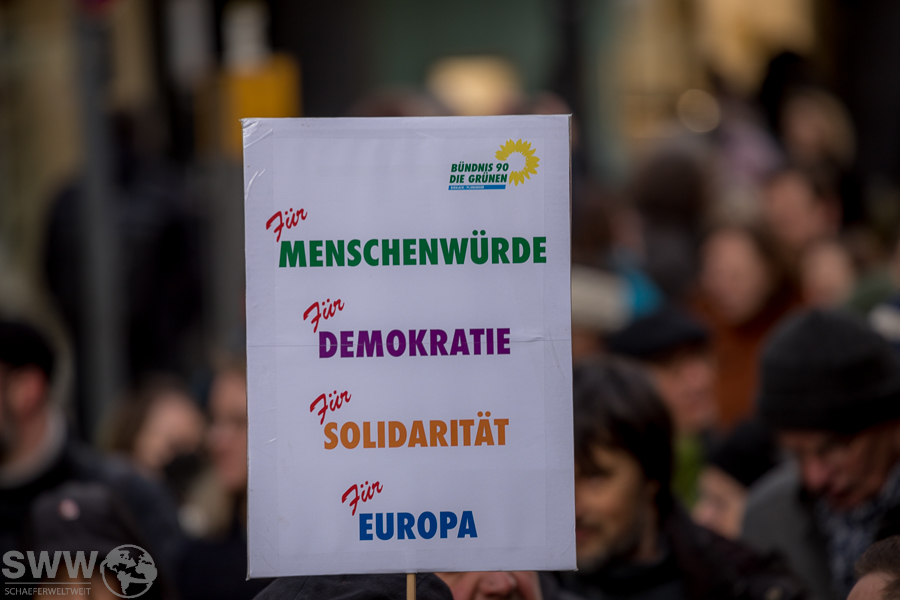 BÜNDNIS 90
DIE GRÜNEN
Für
MENSCHENWÜRDE
Für
DEMOKRATIE
Für
SOLIDARITÄT
Für
EUROPA
SWW
SCHAEFERWELTWEIT